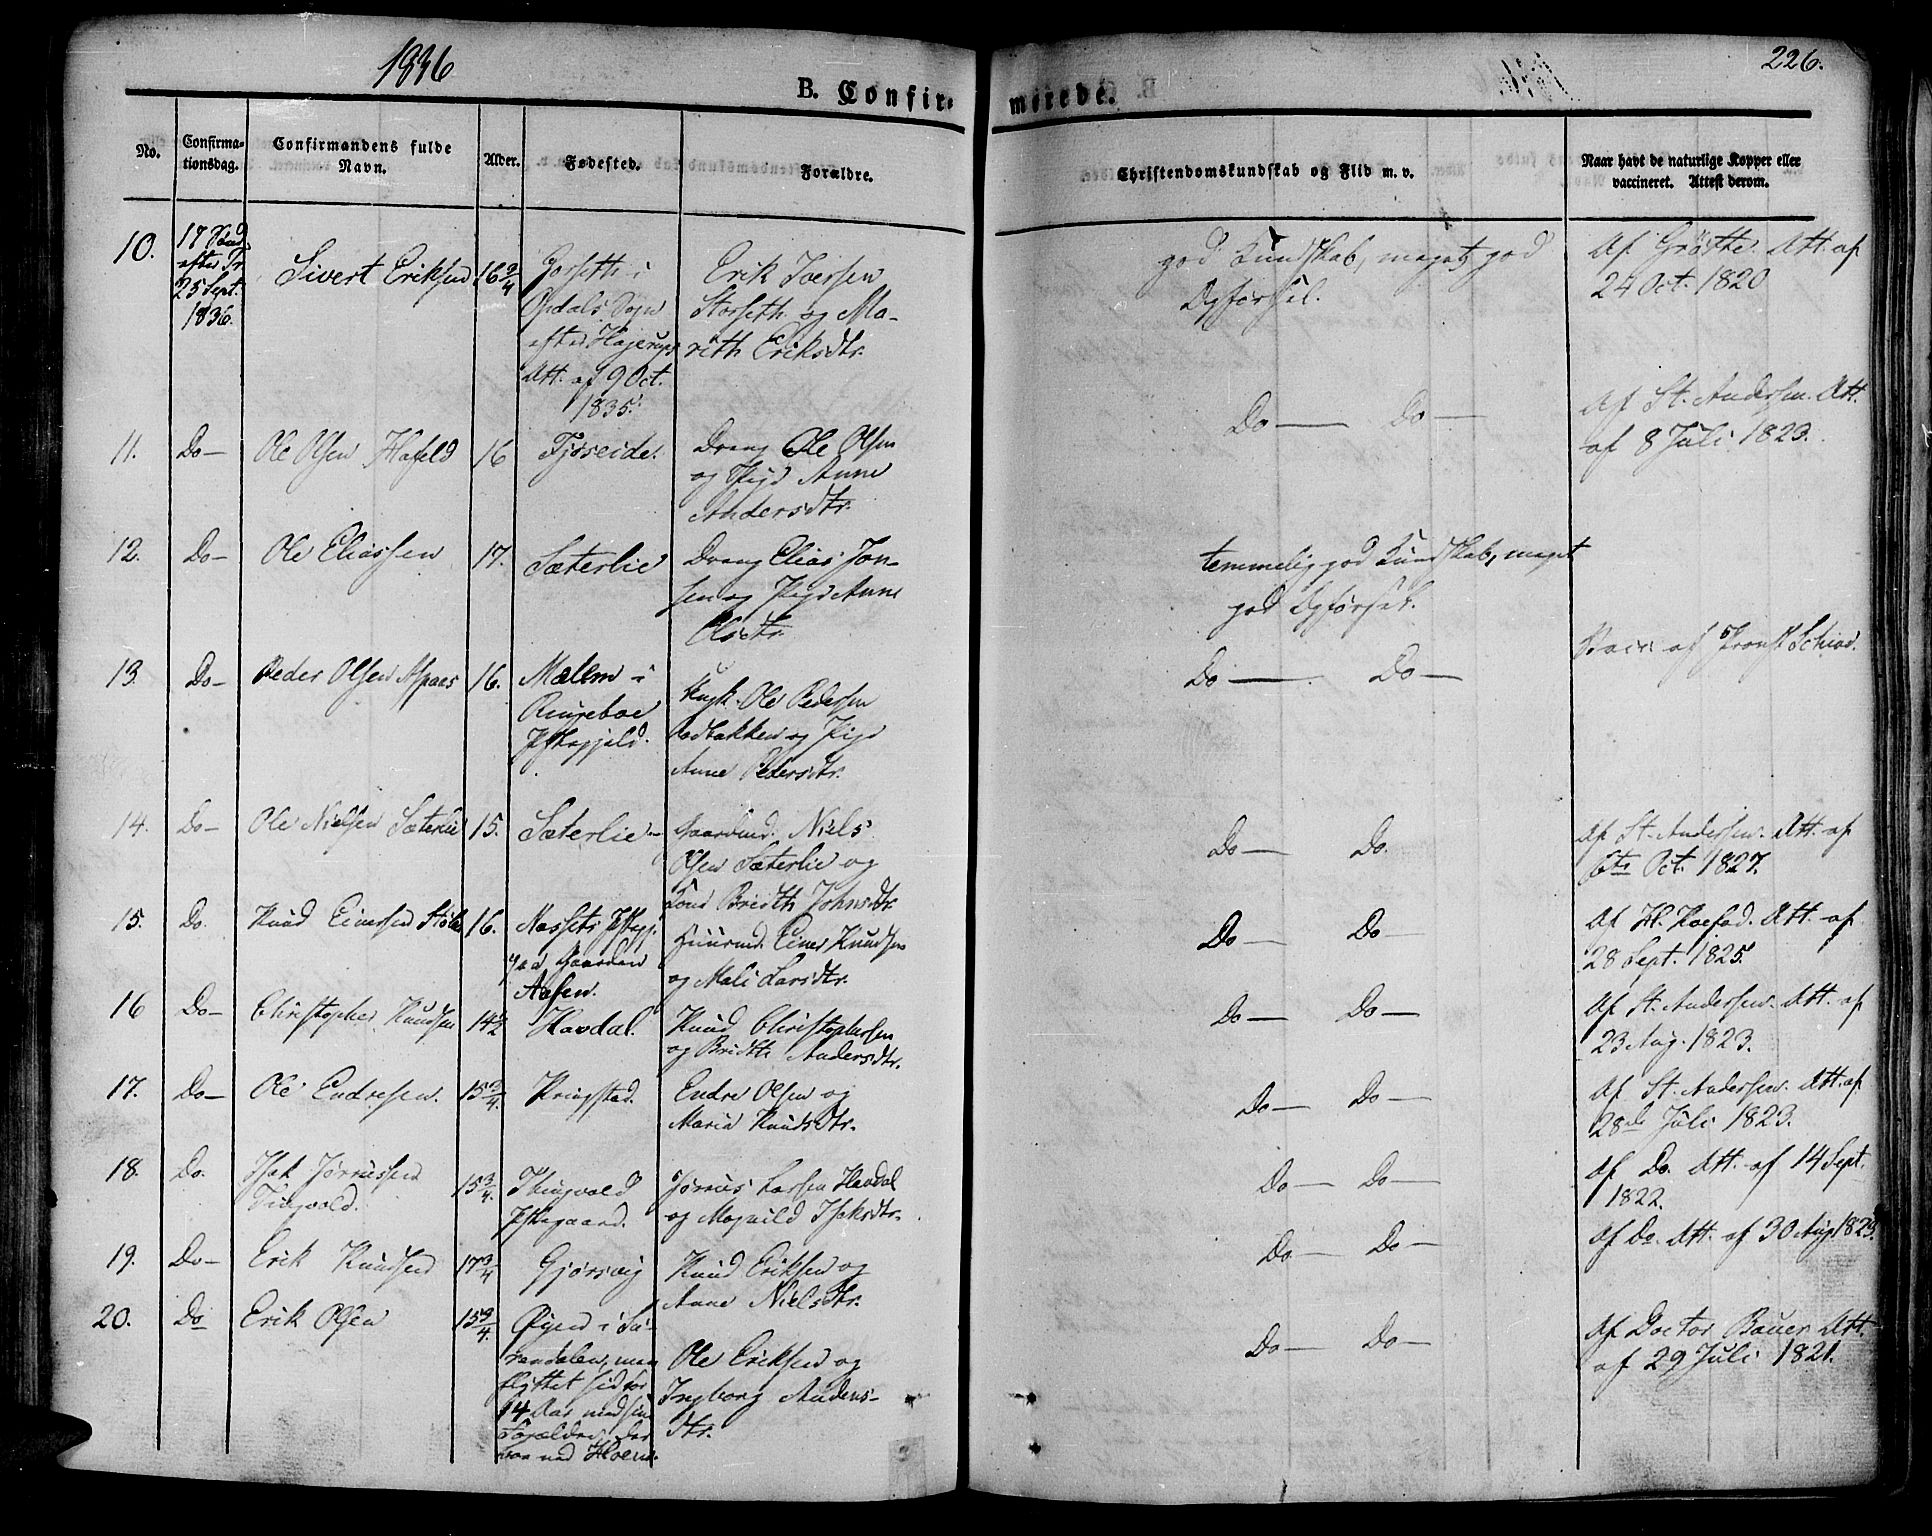 1836
226.
B. Confir-
merede.
No.
Confirma-
tionsdag.
Confirmandens fulde
Navn.
Alder.
Fødested.
Forældre.
Christendomskundskab og Flid m. v.
Naar havt de naturlige Kopper eller
vaccineret. Attest derom.
10.
17 Sønd
efter Tr.
25 Sept.
1836.
Sivert Eriksen
16 3/4
i
Opdals Sogn
efter Hagerups
Att. af 9 Oct.
1835.
Erik Iversen
Storseth og Ma-
rith Eriksdtr.
god Kundskab, meget god
Opførsel.
Af Grøtte. Att. af
24 Oct. 1820
11.
Do
Ole Olsen Hafeld
16
Fjøseide.
Dreng Ole Olsen
og Pige Anne
Andersdtr.
Do Do
Af St. Andersen. Att.
af 8 Juli 1823.
12.
Do
Ole Eliassen
17.
Sæterlie
Dreng Elias Jon-
sen og Pige Anne
Olsdtr.
temmelig god Kundskab, meget
god Opførsel.
13.
Do
Peder Olsen Aspaas
16.
Mælem i
Ringeboe
Præstegjeld.
Ole Pedersen
og Pige
Anne Pedersdtr.
Do Do
Vacc. af Provst Schiød.
14.
Do
Ole Nielsen Sæterlie
15.
Sæterlie
Gaardmd. Niels
Olsen Sæterlie og
Kone Bredth Johnsdtr.
Do Do.
Af St. Andersen. Att. af
6te Oct. 1827.
15.
Do.
Knud Einersen
16.
Nessets Præstegj.
paa Gaarden
Aasen.
Huusmd. Einer Knudsen
og Mali Larsdtr.
Do Do
Af H. Koefod. Att. af
28 Sept. 1825.
16
Do
Christopher Knudsen
14 1/2
Havdal.
Knud Christophersen
og Bridte Andersdtr.
Do Do
Af St. Andersen. Att. af
23 Aug. 1823.
17.
Do
Ole Endresen.
15 3/4.
Kringstad.
Endre Olsen og
Maria Knudsdtr.
Do Do
Af St. Andersen. Att. af
28de Juli 1823.
18.
Do.
Isak Jørrussen
Tingvold.
15 3/4.
Thingvold
Præstegaard.
Jørrus Larsen Havdal
og Magnild Isaksdtr.
Do Do
Af Do. Att. af 14 Sept.
1822.
19.
Do
Erik Knudsen
17 3/4
Gjørsvig
Knud Eriksen og
Anne Nielsdtr.
Do Do
Af Do. Att. af 30 Aug. 1823.
20.
Do
Erik Olsen
15 3/4.
Øyen i Su-
rendalen, men
flyttet hid for
14 Aar med sin
Forældre, der
boe ved
Ole Eriksen og
Ingborg Anders-
dtr.
Do Do
Af Doctor Bauer Att.
af 29 Juli 1821.